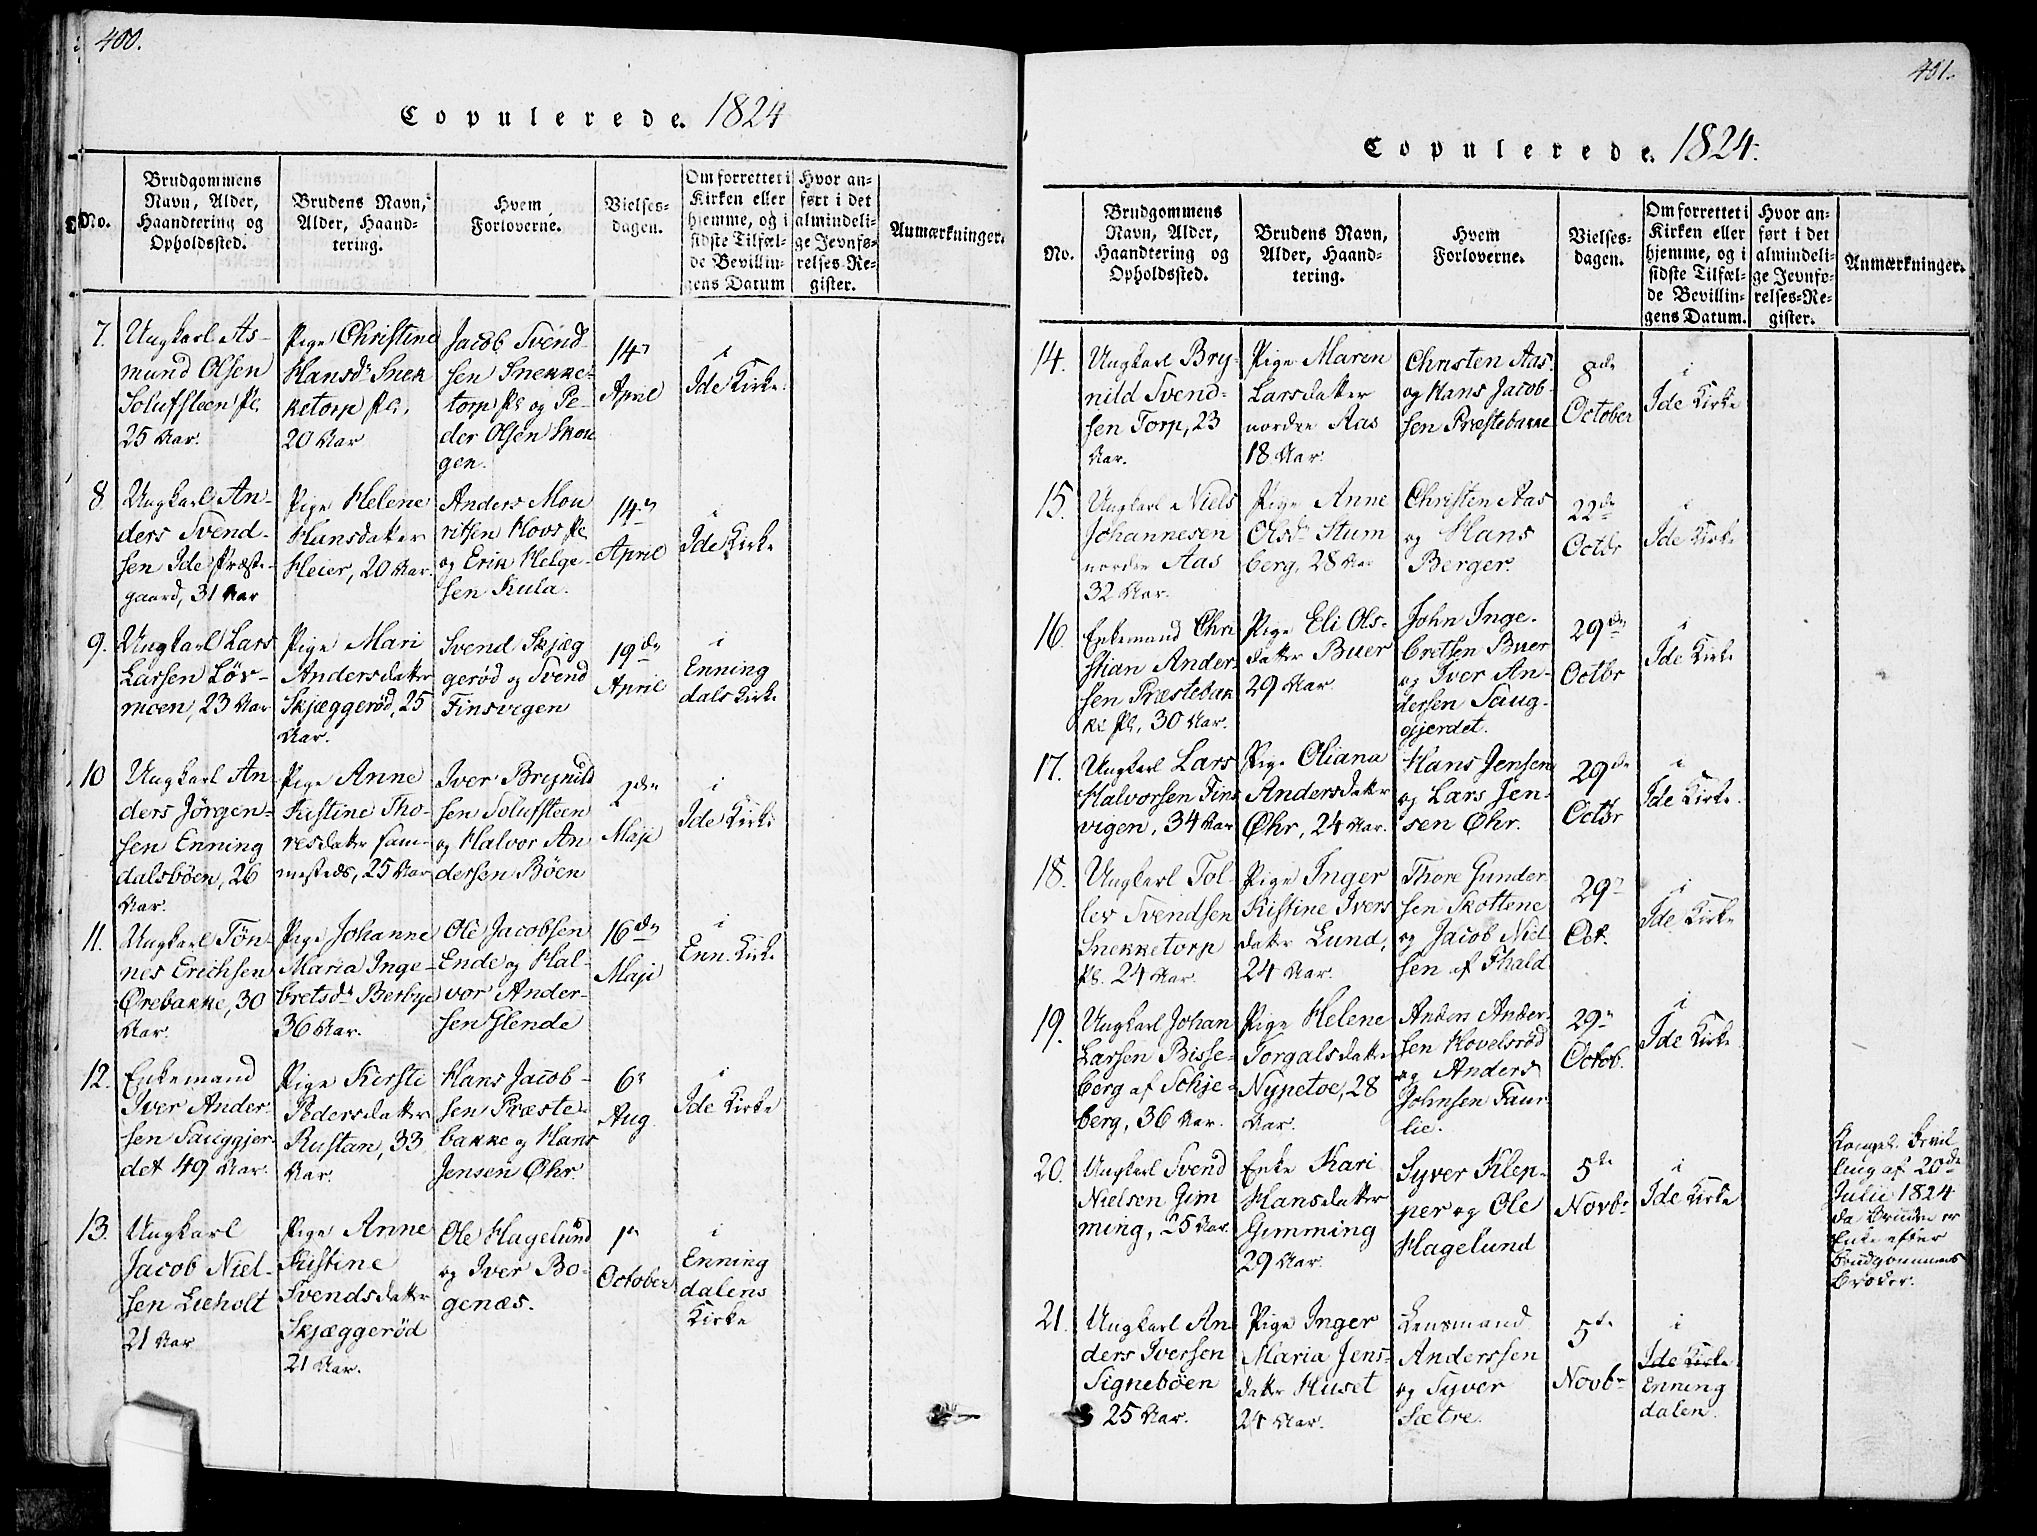 400.
Copulerede. 1824
No.
Brudgommens
Navn, Alder,
Haandtering og
Opholdssted.
Brudens Navn,
Alder, Haand-
tering.
Hvem
Forloverne.
Vielses-
dagen.
Om forrettet i
Kirken eller
hjemme, og i
sidste Tilfæl-
de Bevillin-
gens Datum
Hvor an-
ført i det
almindeli-
ge Jevnfø-
relses-Re-
gister.
Anmærkninger.
7.
Ungkarl As-
mund Olsen
Solufsteen Pl.
25 Aar.
Pige Christine
Hansdr Snek
ketorp Pl,
20 Aar
Jacob Svend
sen Snekke-
torp Pl og Pe-
der Olsen Skou
gen.
14n
April
i
Ide Kirke.
8
Ungkarl An-
ders Svend-
sen Ide Præste-
gaard, 31 Aar
Pige Helene
Hansdatter
Heier, 20 Aar.
Anders Mou
ritsen Hovs Pl
og Erik Helge-
sen Kula.
14n
April
i
Ide Kirke
9.
Ungkarl Lars
Larsen Löv-
moen, 23 Aar
Pige Mari
Andersdatter
Skjæggeröd, 25
Aar.
Svend Skjæg
geröd og Svend
Finsvigen
19de
April
i
Enning
dals Kirke
10
Ungkarl An-
ders Jörgen-
sen Enning
dalsböen, 26
Aar.
Pige Anne
Kistine Tho-
resdatter sam-
mesteds, 25 Aar
Iver Brynild
sen Solufsteen
og Halvor An
dersen Böen
2den
Maji
i
Ide Kirke
11.
Ungkarl Tön-
nes Erichsen
Örebakke, 30
Aar.
Pige Johanne
Maria Inge-
bretsdr Berbye
36 Aar.
Ole Jacobsen
Ende og Hal-
vor Ander-
sen Elende
16de
Maji
i
Enn. Kirke
12.
Enkemand
Iver Ander-
sen Sauggjer-
det 49 Aar.
Pige Kirsti
Pedersdatter
Rustan, 33
Aar.
Hans Jacob-
sen Præste-
bakke og Hans
Jensen Øhr.
6n
Aug.
i
Ide Kirke
13.
Ungkarl
Jacob Niel-
sen Lieholt
21 Aar
Pige Anne
Kistine
Svendsdatter
Skjæggeröd
21 Aar.
Ole Hagelund
og Iver Bo-
genæs.
1n
October
i
Enning
dalens
Kirke
401.
Copulerede. 1824.
No.
Brudgommens
Navn, Alder,
Haandtering og
Opholdssted.
Brudens Navn,
Alder, Haand-
tering.
Hvem
Forloverne.
Vielses-
dagen.
Om forrettet i
Kirken eller
hjemme, og i
sidste Tilfæl-
de Bevillin-
gens Datum.
Hvor an-
ført i det
almindeli-
ge Jevnfø-
relses-Re-
gister.
Anmærkninger.
14.
Ungkarl Bry-
nild Svend-
sen Torp, 23
Aar.
Pige Maren
Larsdatter
nordre Aas
18 Aar.
Christen Aas.
og Hans Jacob-
sen Præstebakke
8de
October
i
Ide Kirke
15.
Ungkarl Niels
Johannesen
nordre Aas
32 Aar.
Pige Anne
Olsdr Stum
berg, 28 Aar
Christen Aas
og Hans
Berger.
22de
Octbr
i
Ide Kirke
16.
Enkemand Chri
stian Ander-
sen Præstebak
ke Pl, 30 Aar.
Pige Eli Ols-
datter Buer
29 Aar.
John Inge-
bretsen Buer
og Iver An-
dersen Saug-
gjerdet.
29de
Octbr
i
Ide Kirke
17.
Ungkarl Lars
Halvorsen Fins
vigen, 34 Aar
Pige Oliana
Andersdatter
Øhr, 24 Aar.
Hans Jensen
og Lars Jen-
sen Øhr.
29de
Octbr
i
Ide Kirke.
18.
Ungkarl Tol-
lev Svendsen
Snekketorp
Pl. 24 Aar.
Pige Inger
Kistine Ivers
datter Lund,
24 Aar.
Thore Gunder
sen Skottene
og Jacob Niel
sen af Fhald
29n
Oct.
i
Ide Kirke
19.
Ungkarl Johan
Larsen Bisse-
berg af Schje-
berg, 36 Aar.
Pige Helene
Torgalsdatter
Nypetoe, 28
Aar.
Anders Ander-
sen Hovelsröd
og Anders
Johnsen Faur
lie.
29n
Octob.
i
Ide Kirke
20.
Ungkarl Svend
Nielsen Gim
ming, 25 Aar.
Enke Kari
Hansdatter
Gimming
29 Aar.
Syver Klep-
per og Ole
Hagelund
5te
Novbr
i
Ide Kirke
Kongel. Bevil
ling af 20de
Julii 1824
da Bruden er
Enke efter
Brudgommens
Broder.
21.
Ungkarl An-
ders Iversen
Signeböen
25 Aar.
Pige Inger
Maria Jens-
datter Huset
24 Aar.
Lensmand
Anderssen
og Syver
Sætre.
5te
Novbr
i
Ide Kirke
Enning
dalen.